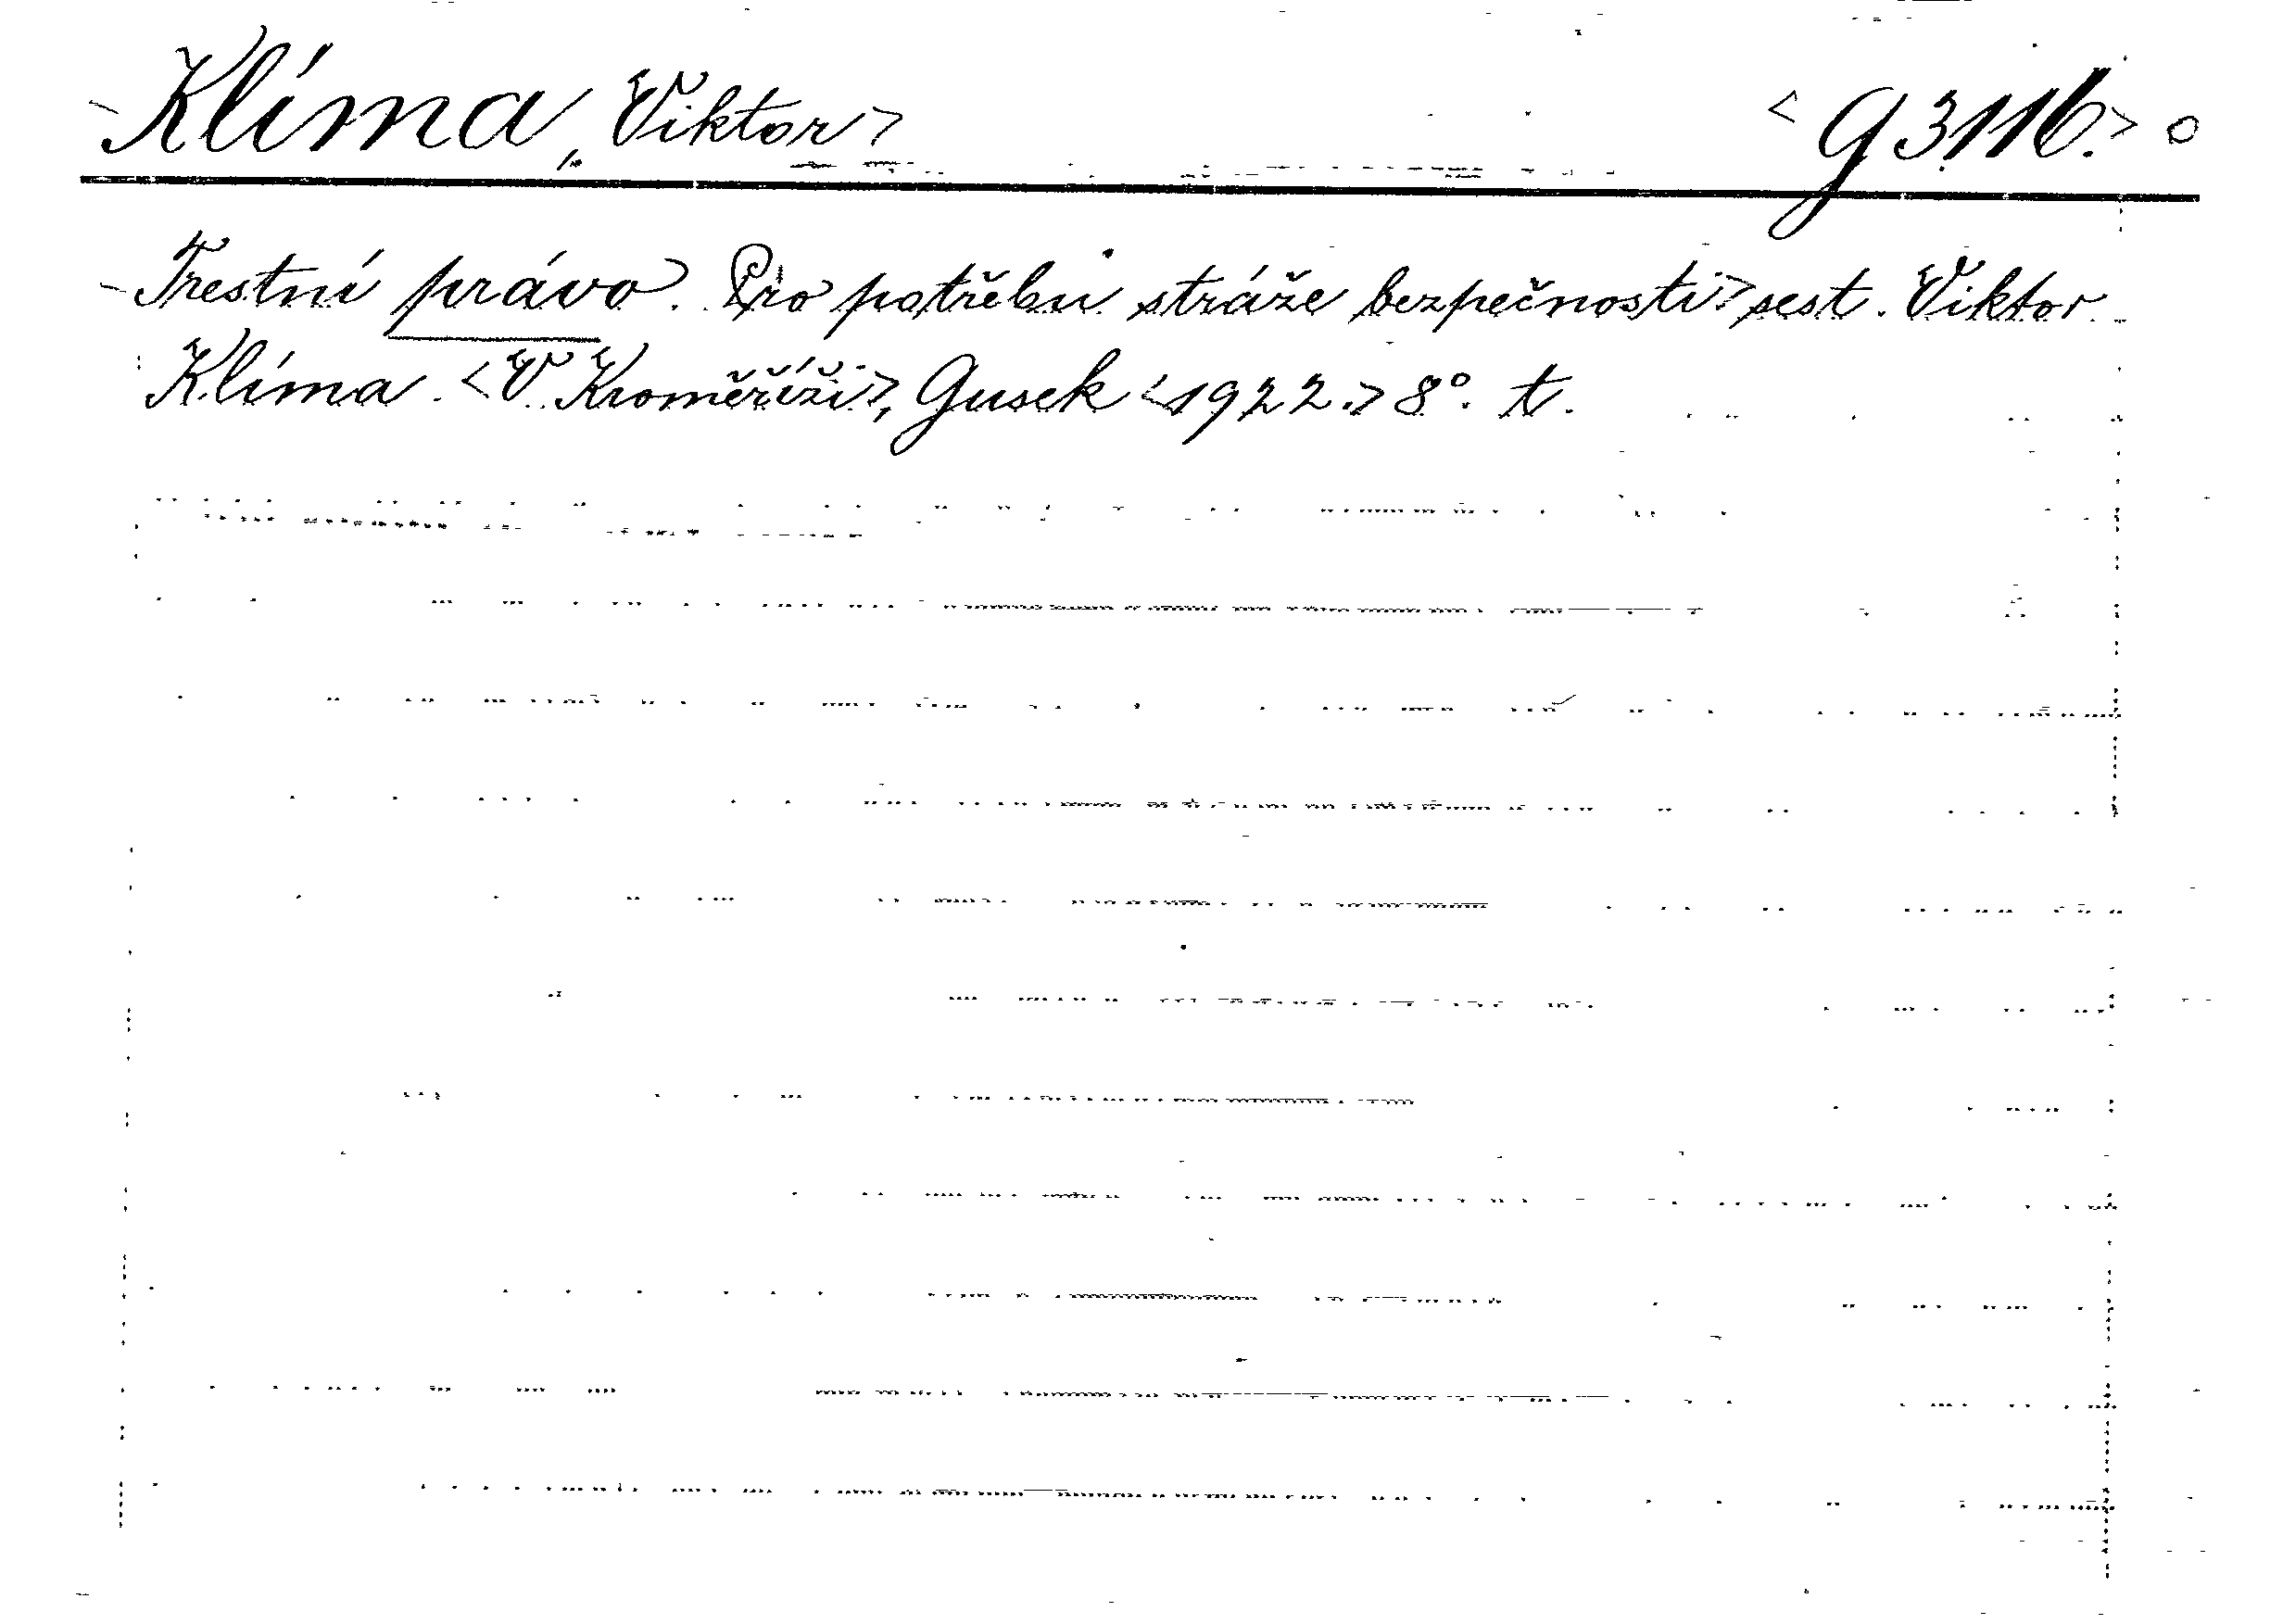 Klíma, Viktor> <g 3116.> o
Trestní právo. Pro potřebu stráže bezpečnosti> sest. Viktor
Klíma. <V Kroměříži>, Gusek <1922.> 8°. t.